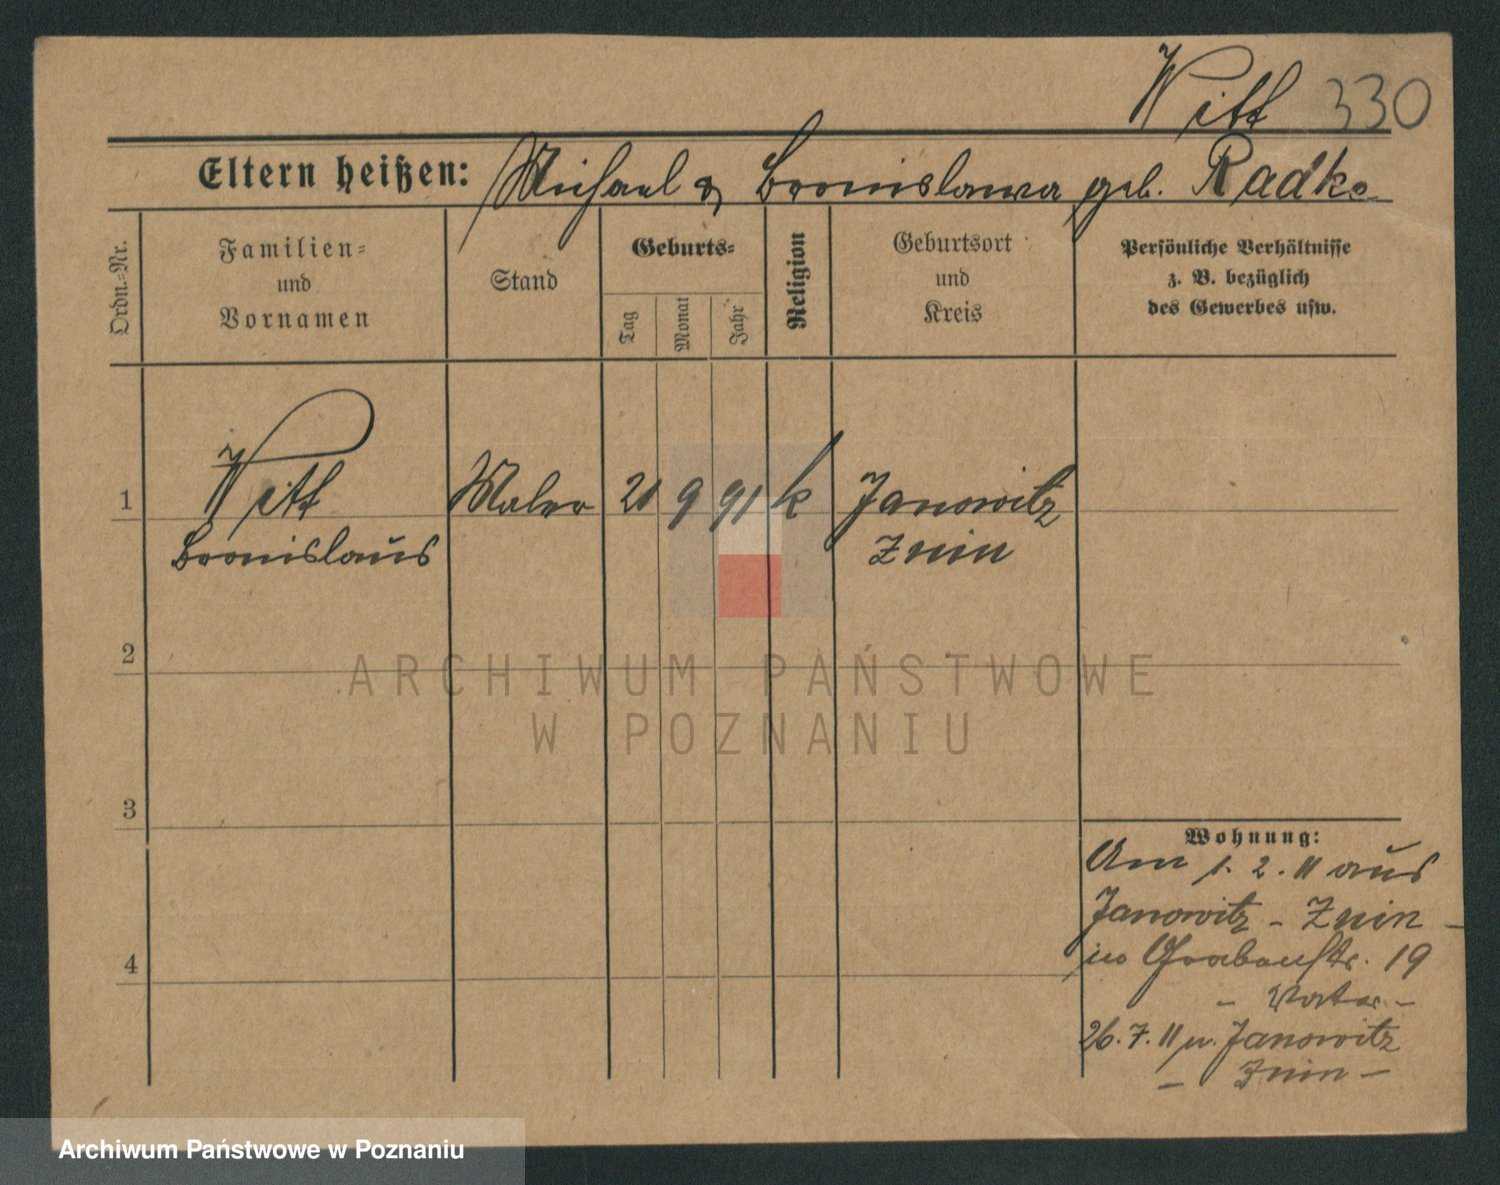 Witt 330
Eltern heißen: Michael & Bronislawa geb. Radke
Ordn.-Nr.
Familien-
und
Vornamen
Stand
Geburts-
Tag
Monat
Jahr
Religion
Geburtsort
und
Kreis
Persönliche Verhältnisse
z. B. bezüglich
des Gewerbes usw.
1 Witt Maler 21 9 91 k Janowitz
Bronislaus Znin
2
3
4
Wohnung:
Am 1. 2. 11 aus
Janowitz - Znin -
in Grabenstr. 19
- Vater -
26. 7. 11 n. Janowitz
- Znin -
ARCHIWUM PAŃSTWOWE
W POZNANIU
Archiwum Państwowe w Poznaniu